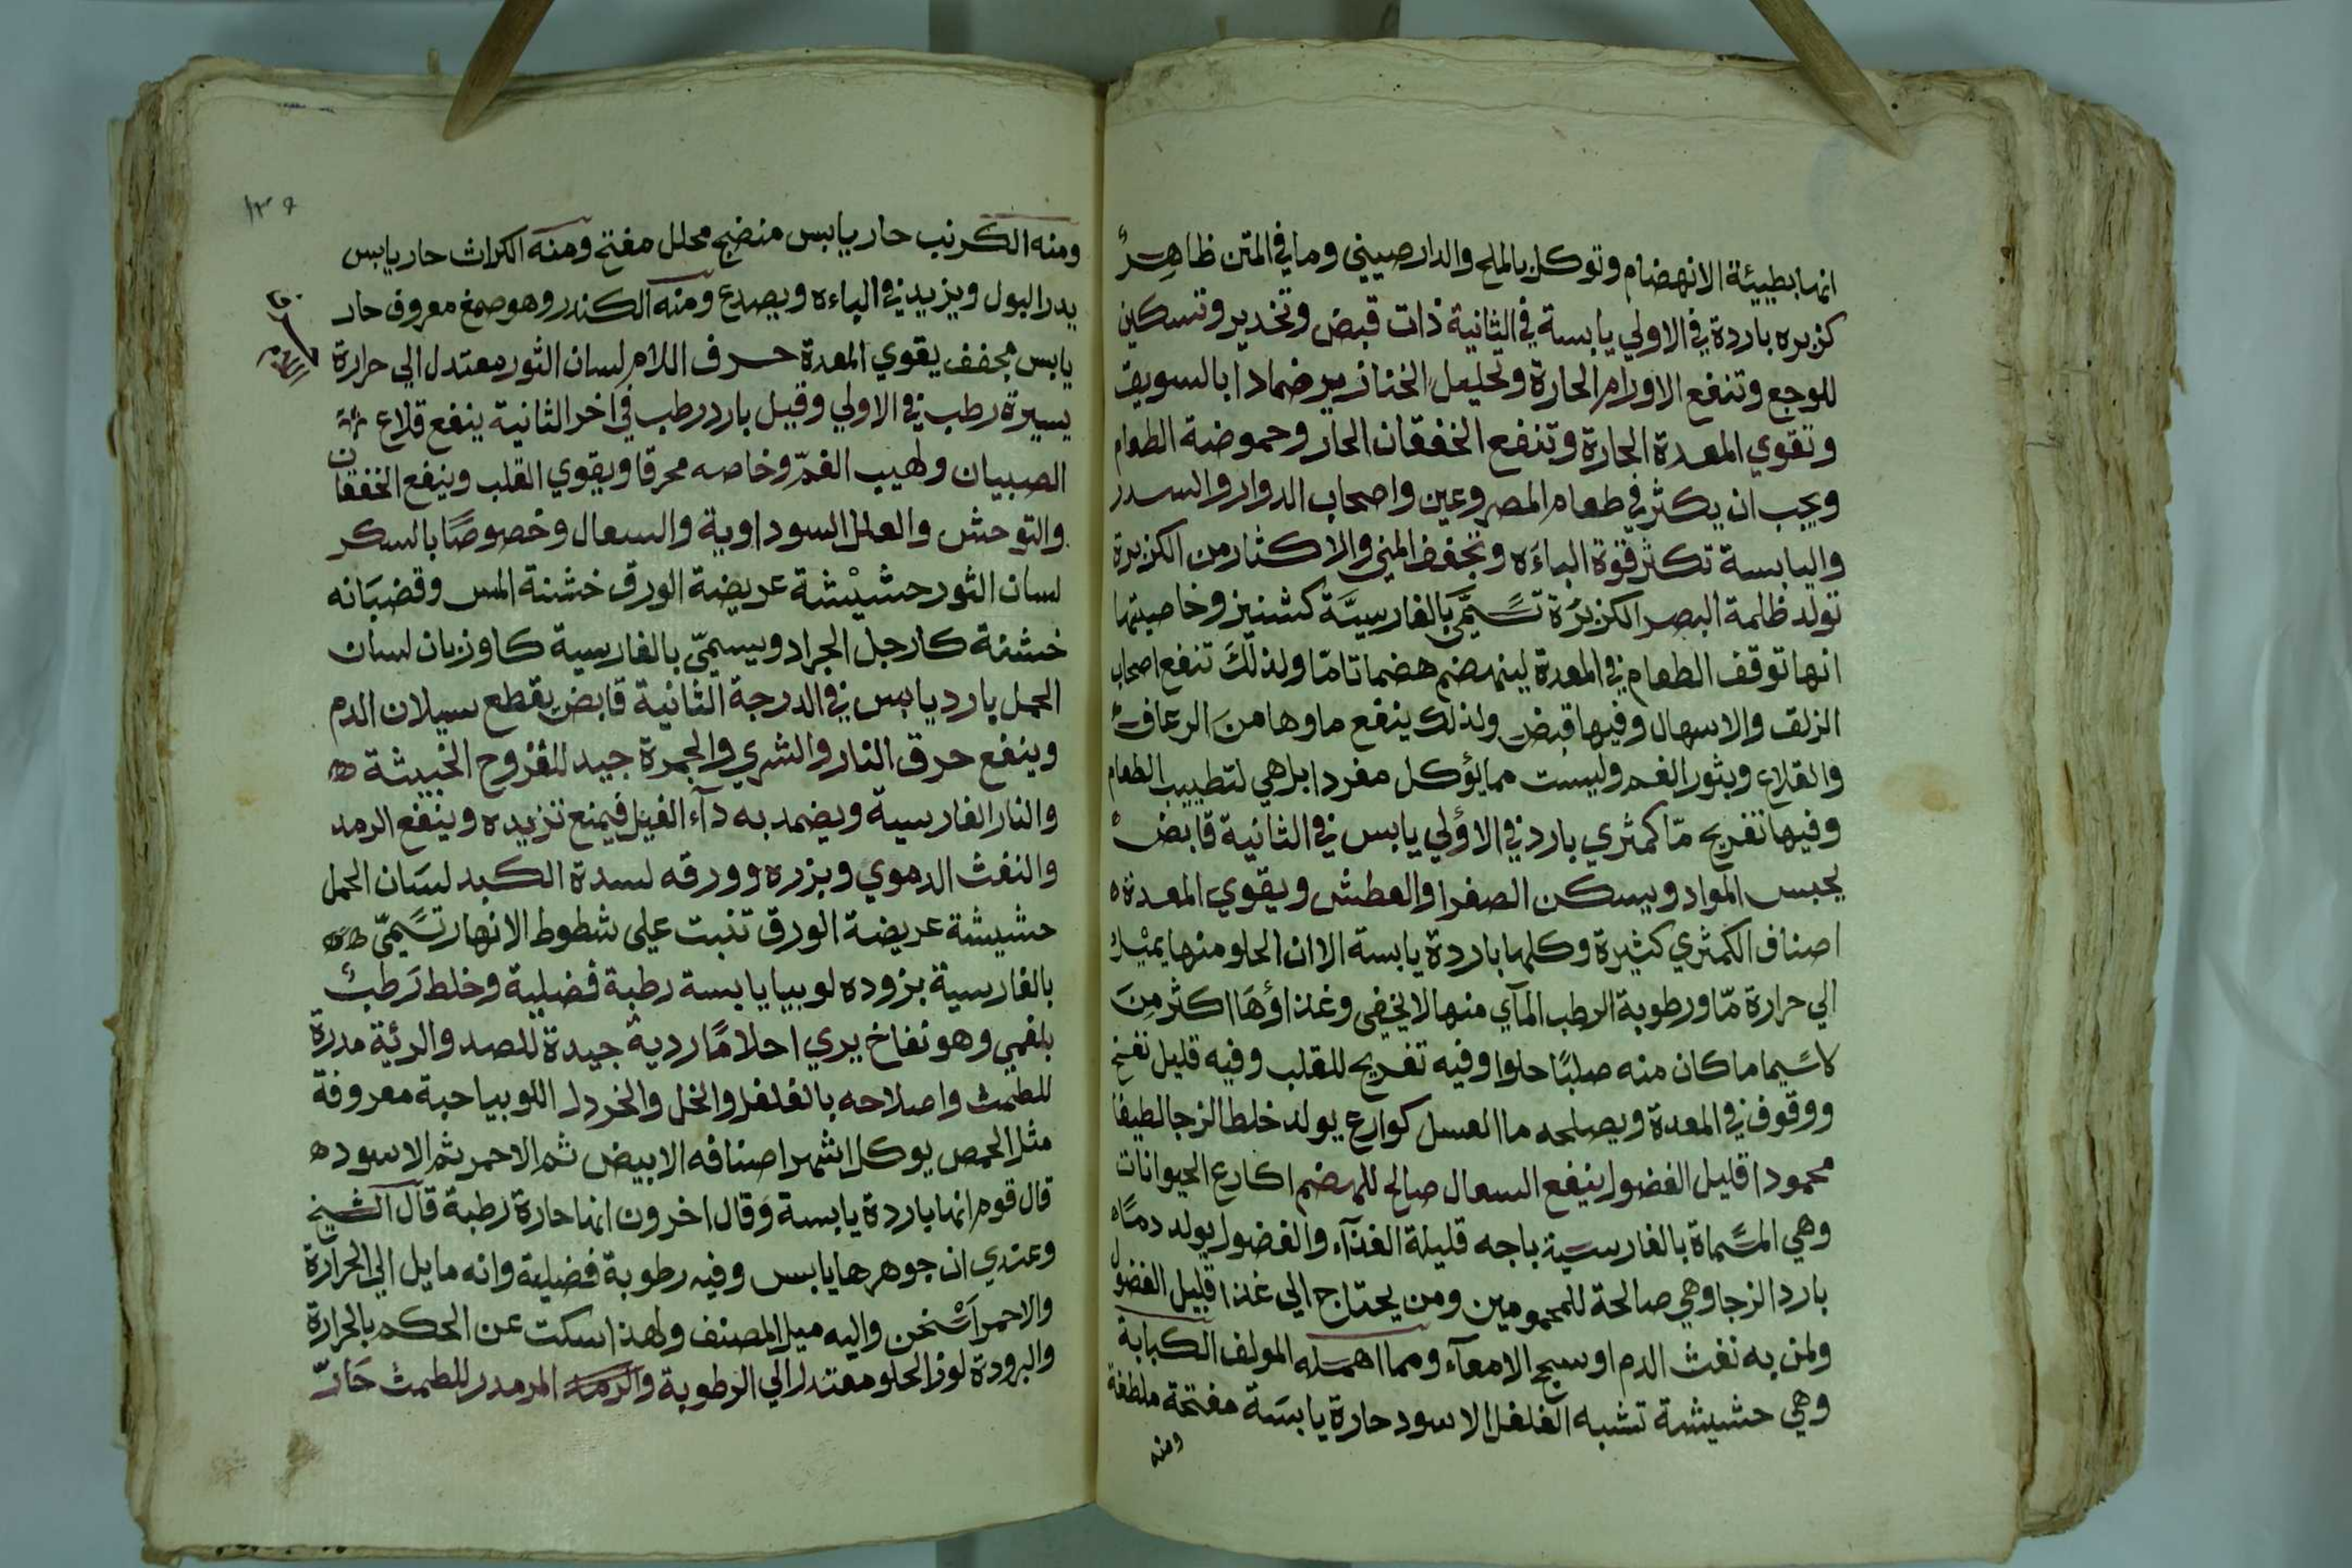 انها بطيئة الانهضام وتوكل بالملح والدارصيني وما في المتن ظاهر
كزبره باردة في الاولي يابسة في الثانية ذات قبض وتخدير وتسكين
للوجع وتنفع الاورام الحارة وتحليل الخنازير ضمادا بالسويق
وتقوي المعدة الحارة وتنفع الخفقان الحار وحموضة الطعام
ويجب ان يكثر في طعام المصروعين واصحاب الدوار والسدر
واليابسة تكثر قوة الباءه وتجفف المني والاكثار من الكزبرة
تولد ظلمة البصر الكزبرة تسمي بالفارسية كشنيز وخاصيتها
انها توقف الطعام في المعدة لينهضم هضما تاما ولذلك تنفع اصحاب
الزلق والاسهال وفيها قبض ولذلك ينفع ماوها من الرعاف
والقلاع وبثور الفم وليست مما يؤكل مفردا بل هي لتطييب الطعام
وفيها تفريح ما كمثري بارد في الاولي يابس في الثانية قابض
يحبس المواد ويسكن الصفرا والعطش ويقوي المعدة ه
اصناف الكمثري كثيرة وكلها باردة يابسة الا ان الحلو منها يميل
الي حرارة ما ورطوبة الرطب المآي منها لا يخفي وغذاؤها اكثر من
لاسيما ما كان منه صلبا حلوا وفيه تفريح للقلب وفيه قليل نفخ
ووقوف في المعدة ويصلحه ما العسل كوارع يولد خلطا لزجا لطيفا
محمودا قليل الفضول ينفع السعال صالح للهضم اكارع الحيوانات
وهي المسماة بالفارسية باجه قليلة الغذآء والفضول يولد دما
بارد الزجا وهي صالحة للمحمومين ومن يحتاج الي غذا قليل الفضول
ولمن به نفث الدم او سبج الامعآء ومما اهمله المولف الكبابة
وهي حشيشة تشبه الفلفل الاسود حارة يابسة مفتحة ملطفة
ومنه
ومنه الكرنب حار يابس منضج محلل مفتح ومنه الكراث حار يابس
يدر البول ويزيد في الباءه ويصدع ومنه الكندر وهو صمغ معروف حار
يابس مجفف يقوي المعدة حرف اللام لسان الثور معتدل الي حرارة
يسيرة رطب في الاولي وقيل بارد رطب في اخر الثانية ينفع قلاع
الصبيان ولهيب الفم وخاصه محرقا ويقوي القلب وينفع الخفقان
والتوحش والعلل السوداوية والسعال وخصوصا بالسكر
لسان الثور حشيشة عريضة الورق خشنة المس وقضبانه
خشنة كارجل الجراد ويسمي بالفارسية كاوزبان لسان
الحمل بارد يابس في الدرجة الثانية قابض يقطع سيلان الدم
وينفع حرق النار والشري والجمرة جيد للقروح الخبيثة ه
والنار الفارسية ويضمد به دآء الفيل فيمنع تزيده وينفع الرمد
والنفث الدموي وبزره وورقه لسدة الكبد لسان الحمل
حشيشة عريضة الورق تنبت علي شطوط الانهار تسمي
بالفارسية بزوده لوبيا يابسة رطبة فضلية وخلط رطب
بلغمي وهو نفاخ يري احلاما ردية جيدة للصد والرئة مدرة
للطمث واصلاحه بالفلفل والخل والخردل اللوبيا حبة معروفة
مثل الحمص يوكل اشهر اصنافه الابيض ثم الاحمر ثم الاسود ه
قال قوم انها باردة يابسة وقال اخرون انها حارة رطبة قال الشيخ
وعندي ان جوهرها يابس وفيه رطوبة فضلية وانه مايل الي الحرارة
والاحمر اسخن واليه ميل المصنف ولهذا سكت عن الحكم بالحرارة
والبرودة لوز الحلو معتدل الي الرطوبة المر مدر للطمث حار